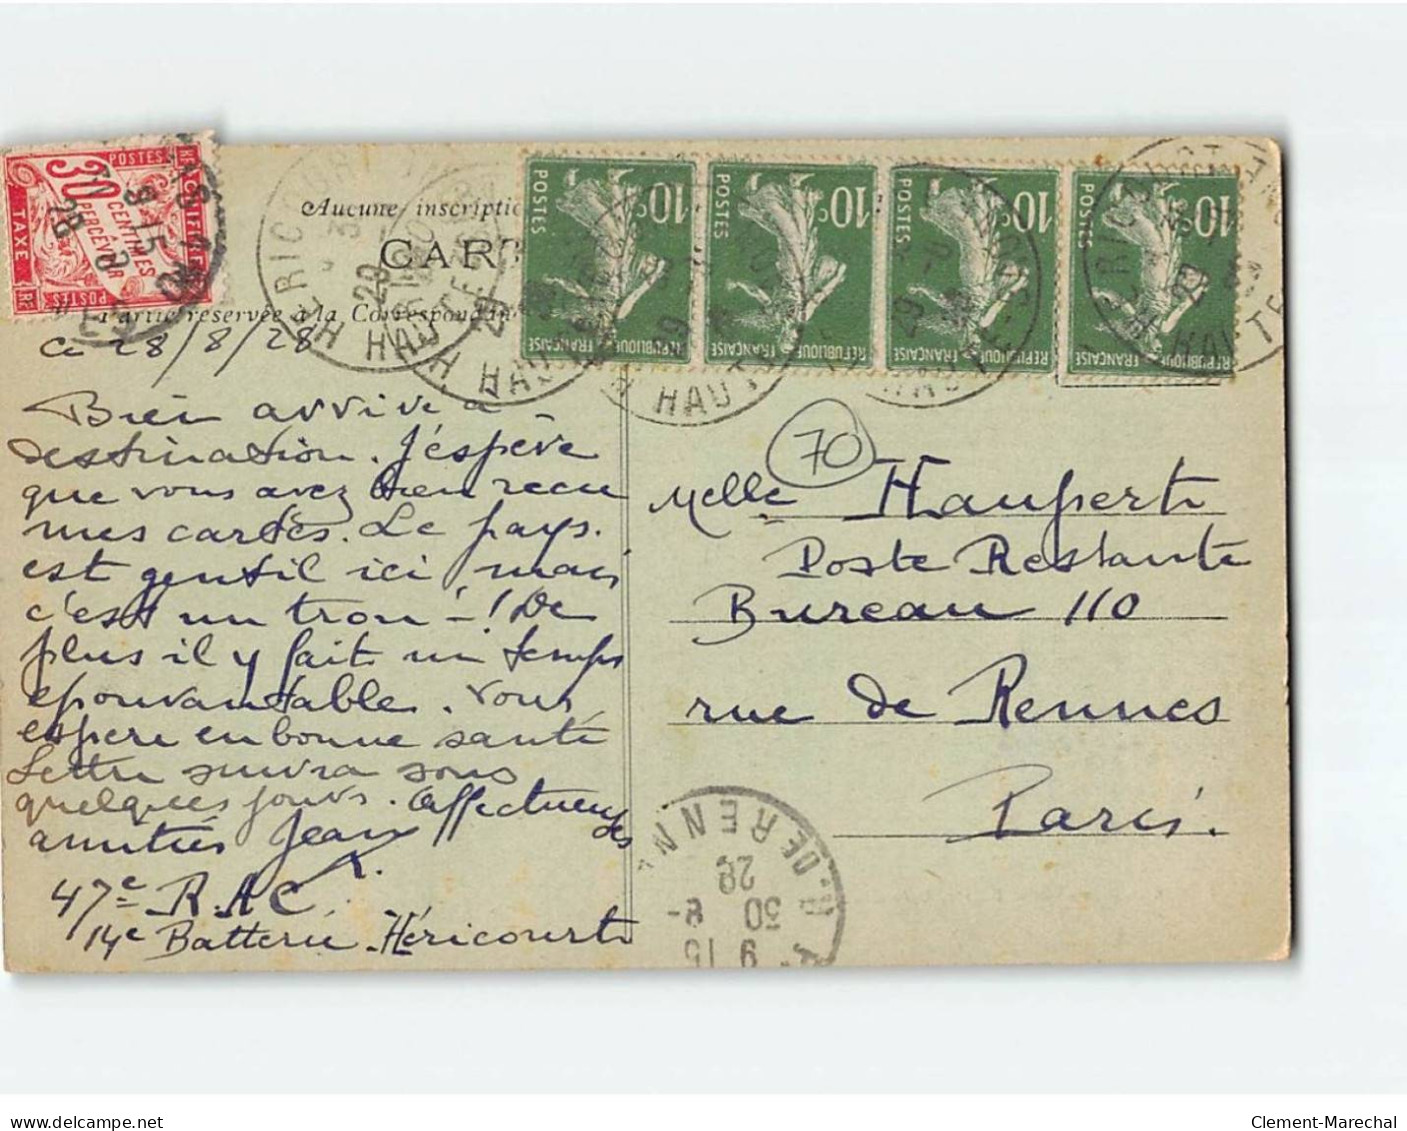 Aucune inscriptio
CART
Partie réservée à la Correspondan
RÉPUBLIQUE FRANÇAISE
POSTES
10c
RÉPUBLIQUE FRANÇAISE
POSTES
10c
RÉPUBLIQUE FRANÇAISE
POSTES
10c
RÉPUBLIQUE FRANÇAISE
POSTES
10c
POSTES
30
CENTIMES
A PERCEVOIR
TAXE
POSTES
Ce 28/8/28
Bien arrivé à
destination. J'espère
que vous avez bien recu
mes cartes. Le pays
est gentil ici mais
c'est un trou - ! De
plus il y fait un temps
epouvantable. Vous
espere en bonne santé
Lettre suivra sous
quelques jours. Affectueuses
amitiés Jean
47e R.A.C.
14e Batterie Héricourt
70
Melle Haupert
Poste Restante
Bureau 110
rue de Rennes
Paris.
R. DE RENN
9 15
30 - 8
28
HAUTE